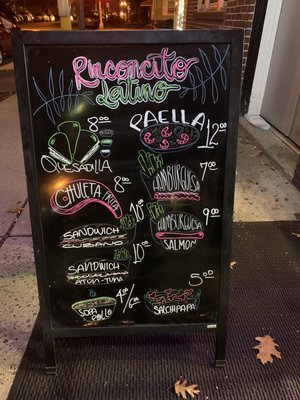 Rinconcito
Latino
QUESADILLA 8.00
PAELLA 12.00
CHULETA FRITA 8.00
HAMBURGUESA 7.00
SANDWICH
CUBANO 10.00
HAMBURGUESA
SALMON 9.00
SANDWICH
ATUN-TUNA 10.00
SOPA
POLLO 4.00/6.00
SALCHIPAPA 5.00